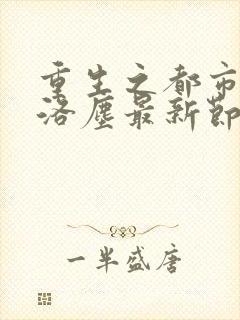 重生之都市
洛尘最新节
一半盛唐